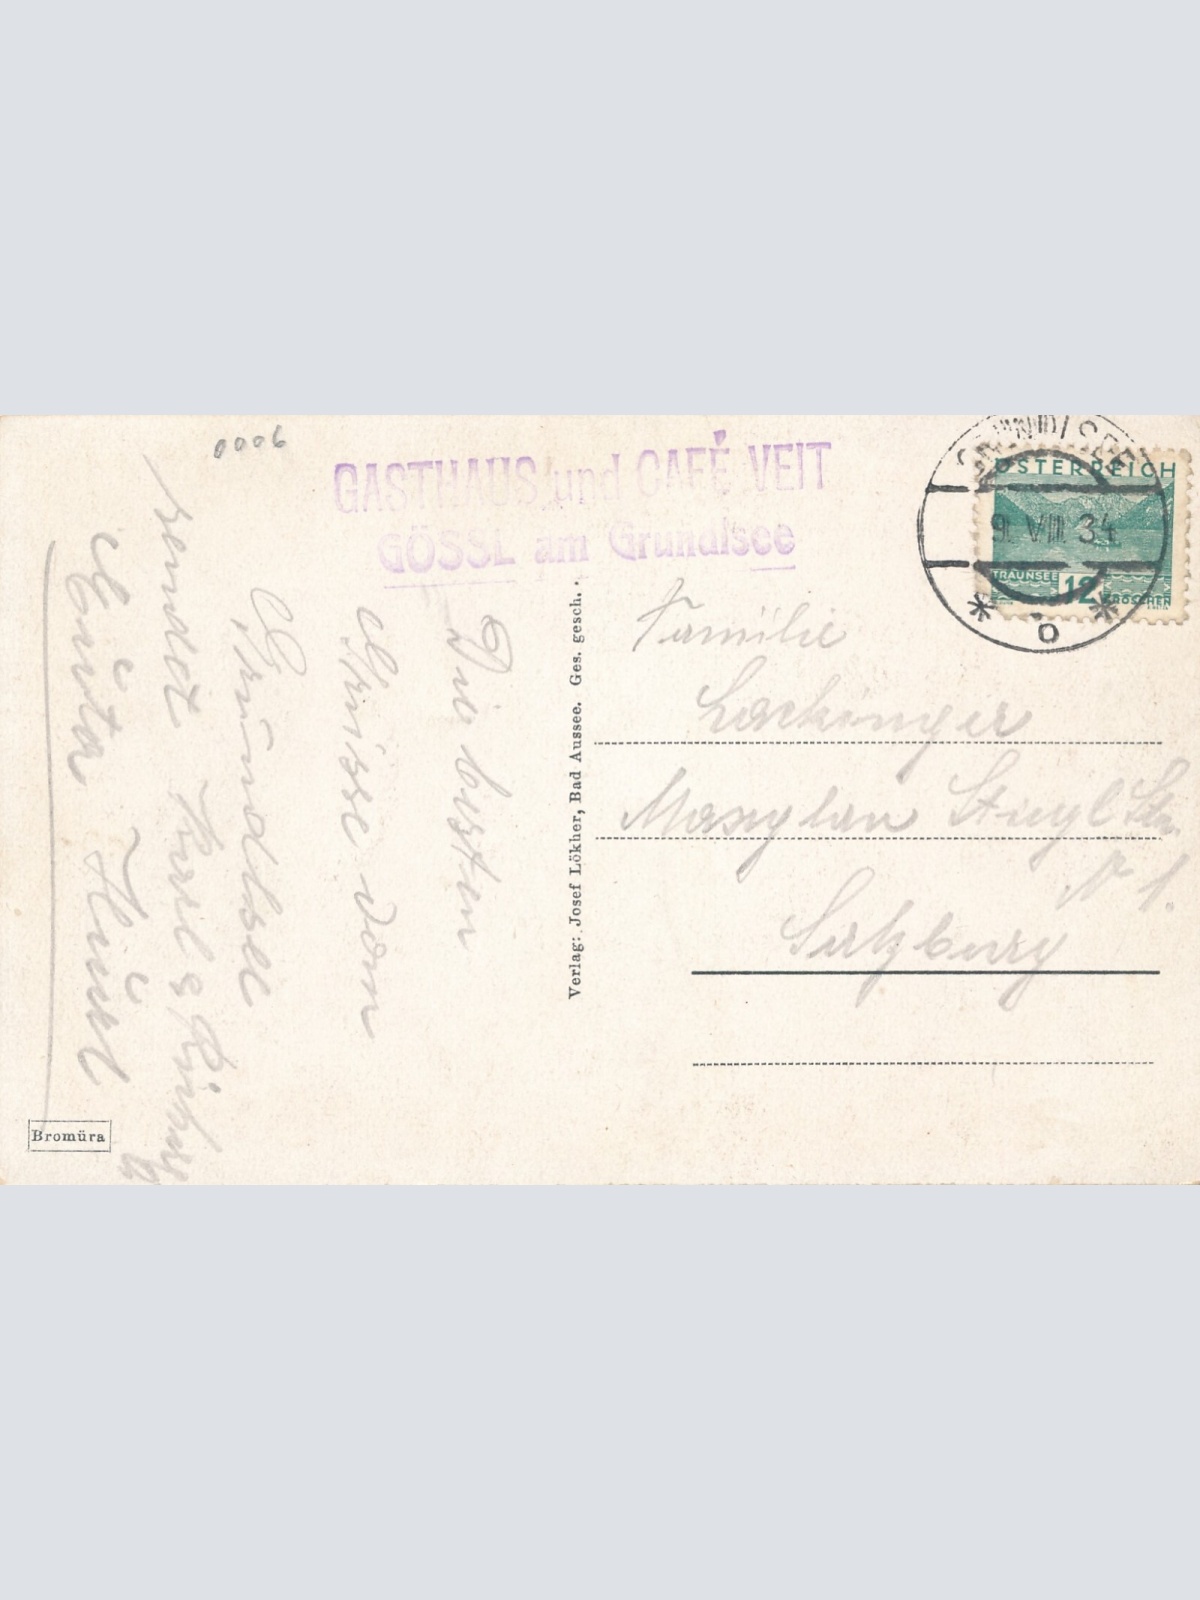 0006
GASTHAUS und CAFÉ VEIT
GÖSSL am Grundlsee
GRUNDLSEE
9. VIII. 34
* b *
ÖSTERREICH
TRAUNSEE 12 GROSCHEN
Familie
Lackinger
Maxglan Stiegl Str.
N 1.
Salzburg
Die besten
Grüsse vom
Grundlsee
sendet
Verlag: Josef Lökher, Bad Aussee. Ges. gesch.
Bromüra